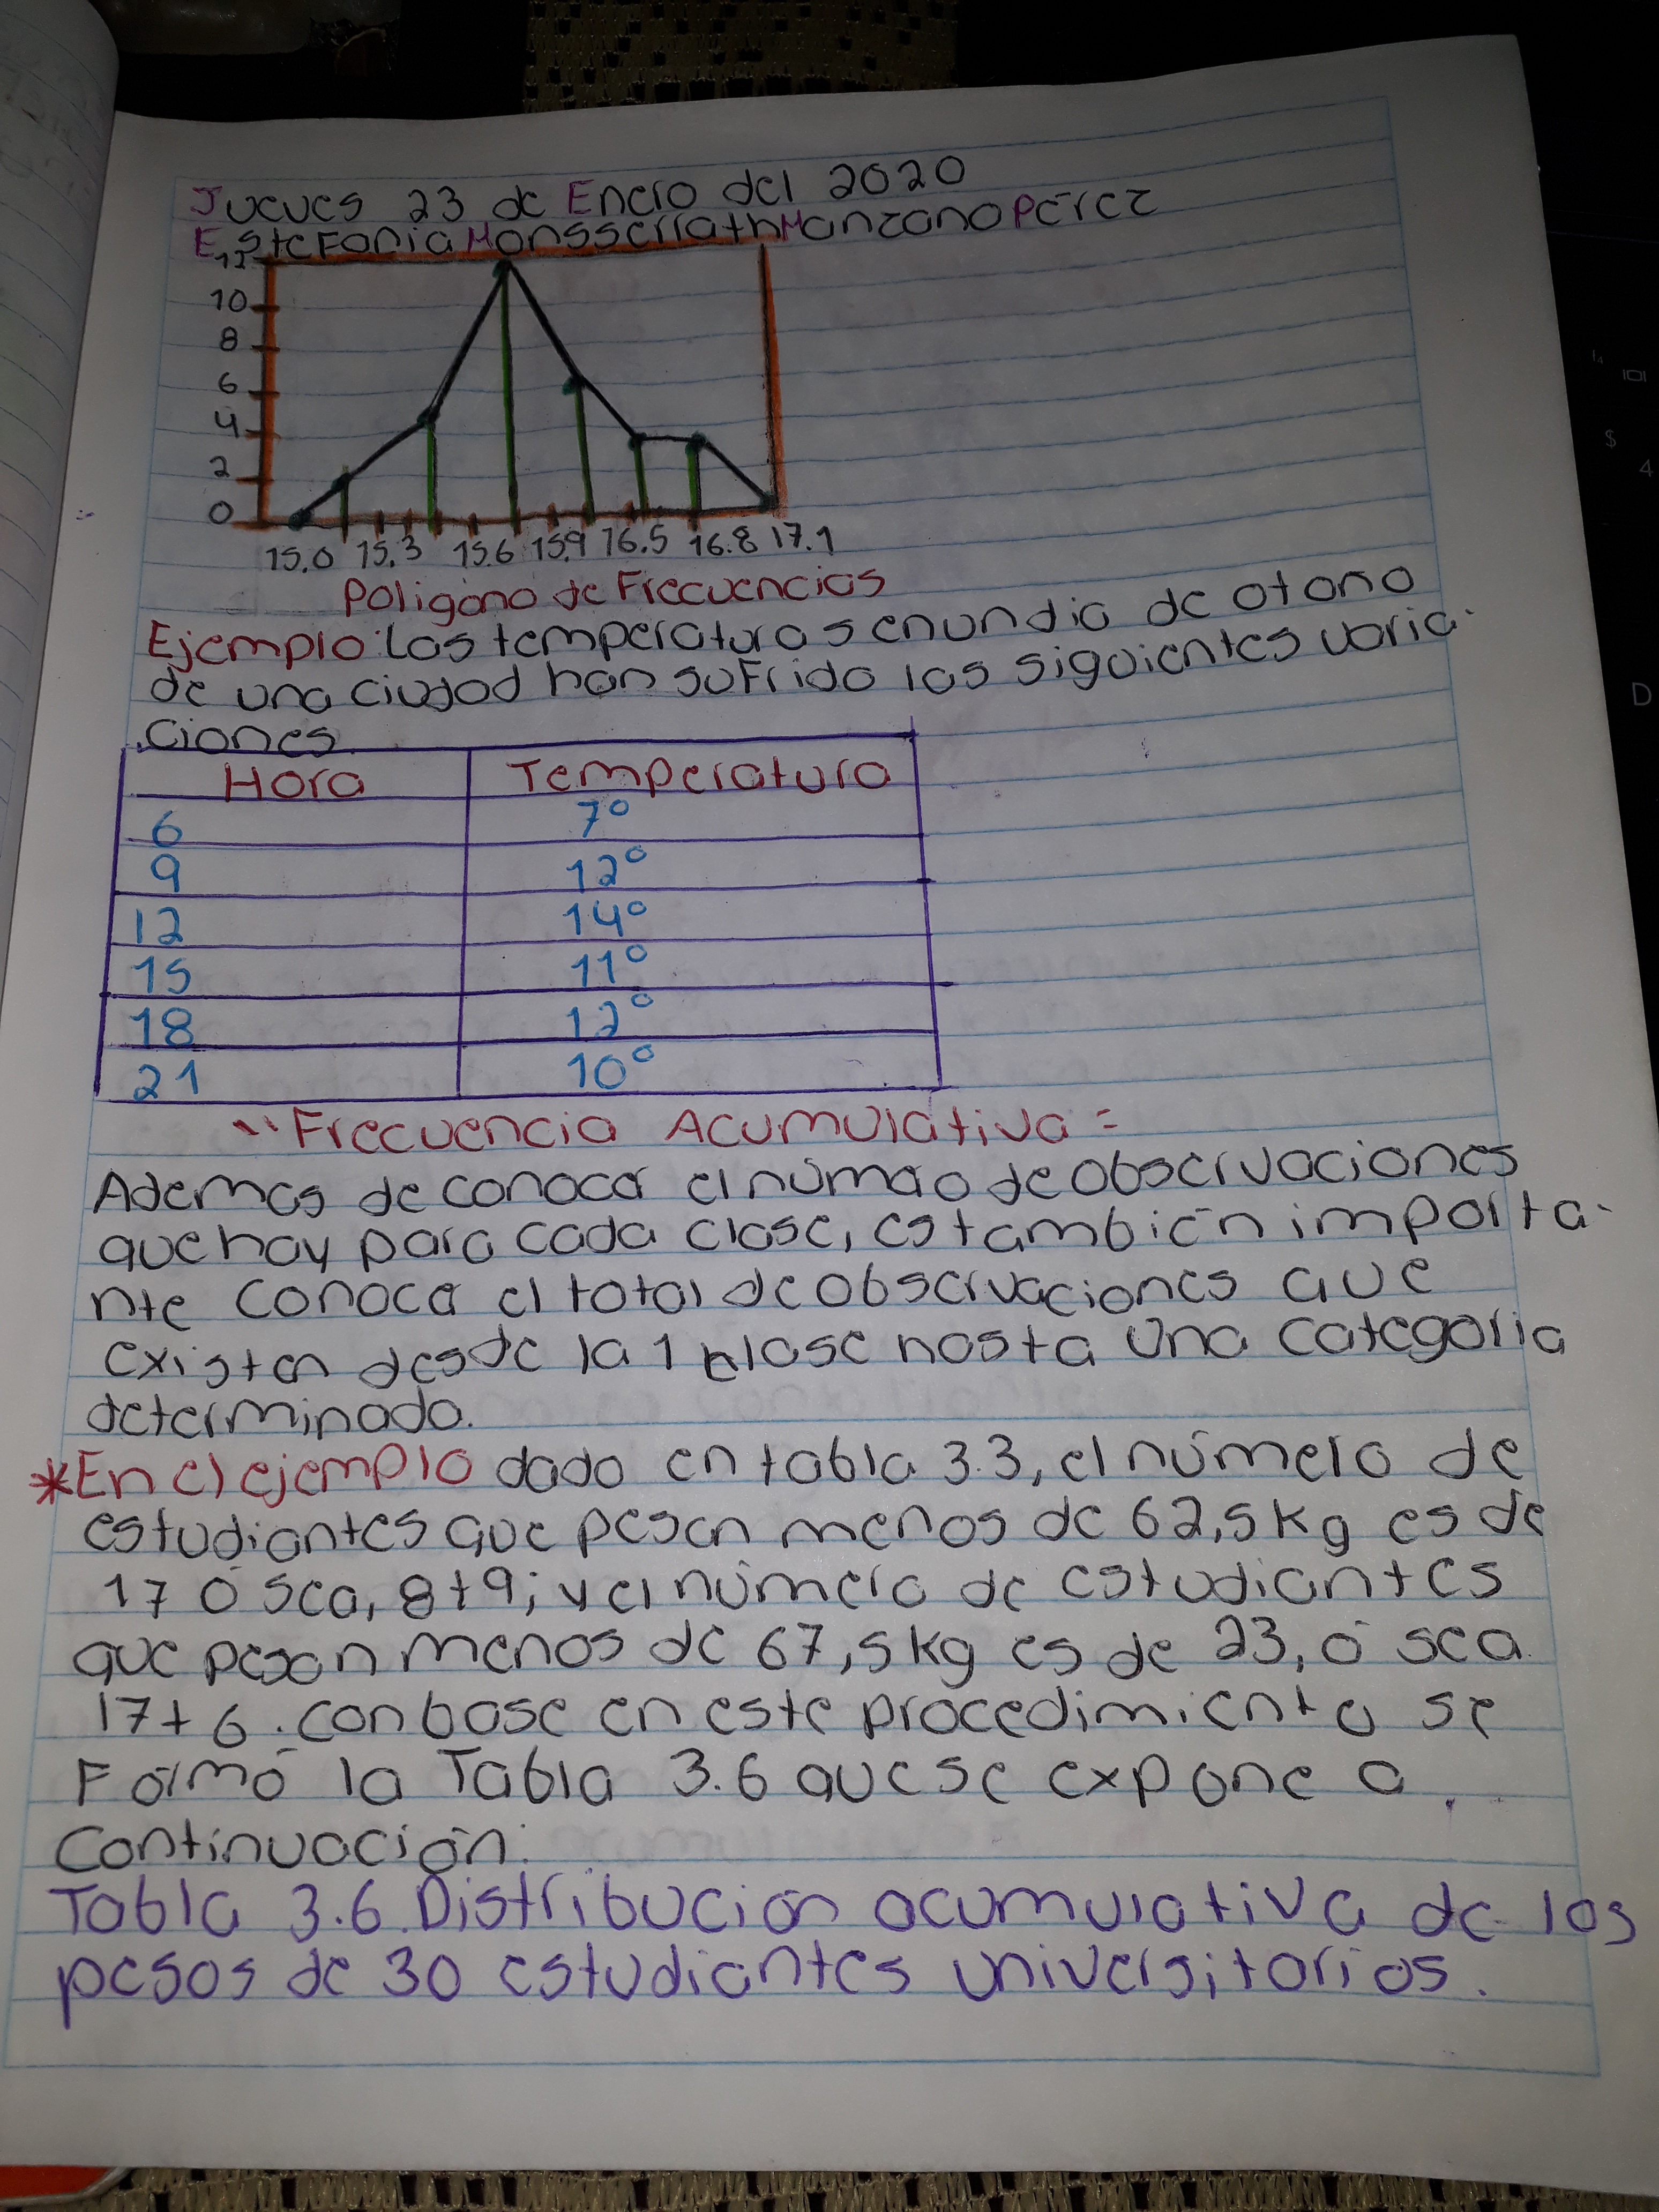 Jueves 23 de Enero del 2020
Estefania Monsserrath Manzano Pérez
12
10
8
6
4
2
0
15.0 15.3 15.6 15.9 16.5 16.8 17.1
Poligono de Frecuencias
Ejemplo: Las temperaturas en un dia de otoño
de una ciudad han sufrido las siguientes varia-
ciones.
Hora Temperatura
6 7°
9 12°
12 14°
15 11°
18 12°
21 10°
"Frecuencia Acumulativa =
Ademas de conocer el número de observaciones
que hay para cada clase, es también importa-
nte conocer el total de observaciones que
existen desde la 1 clase hasta una categoria
determinada.
*En el ejemplo dado en tabla 3.3, el número de
estudiantes que pesan menos de 62,5 kg es de
17 ó sea, 8+9; y el número de estudiantes
que pesan menos de 67,5 kg es de 23, ó sea
17+6. con base en este procedimiento se
Formó la Tabla 3.6 que se expone a
Continuación:
Tabla 3.6. Distribución acumulativa de los
pesos de 30 estudiantes universitarios.